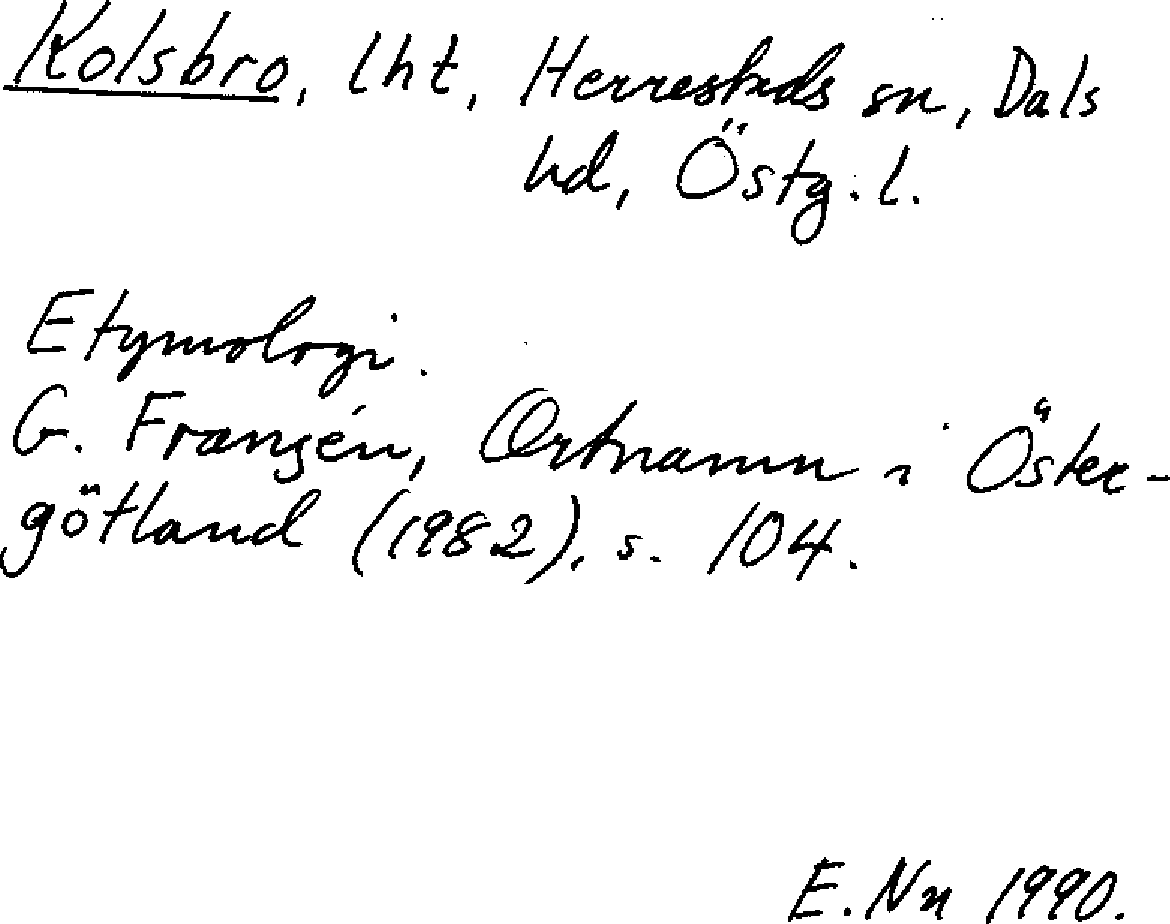 Kolsbro, lht, Herrestads sn, Dals
hd, Östg. l.
Etymologi.
G. Franzén, Ortnamn i Öster-
götland (1982), s. 104.
E. Nn 1990.